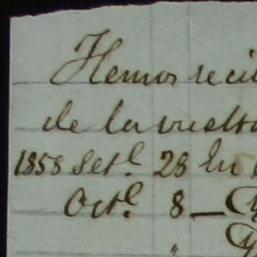 Hemos reci
de la vuelta
1858 Set.e 28 En
Oct.e 8 —
"